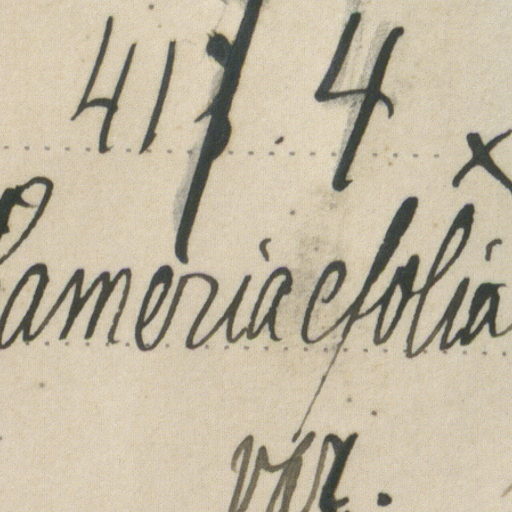 41 4 x
ameriaefolia
var.